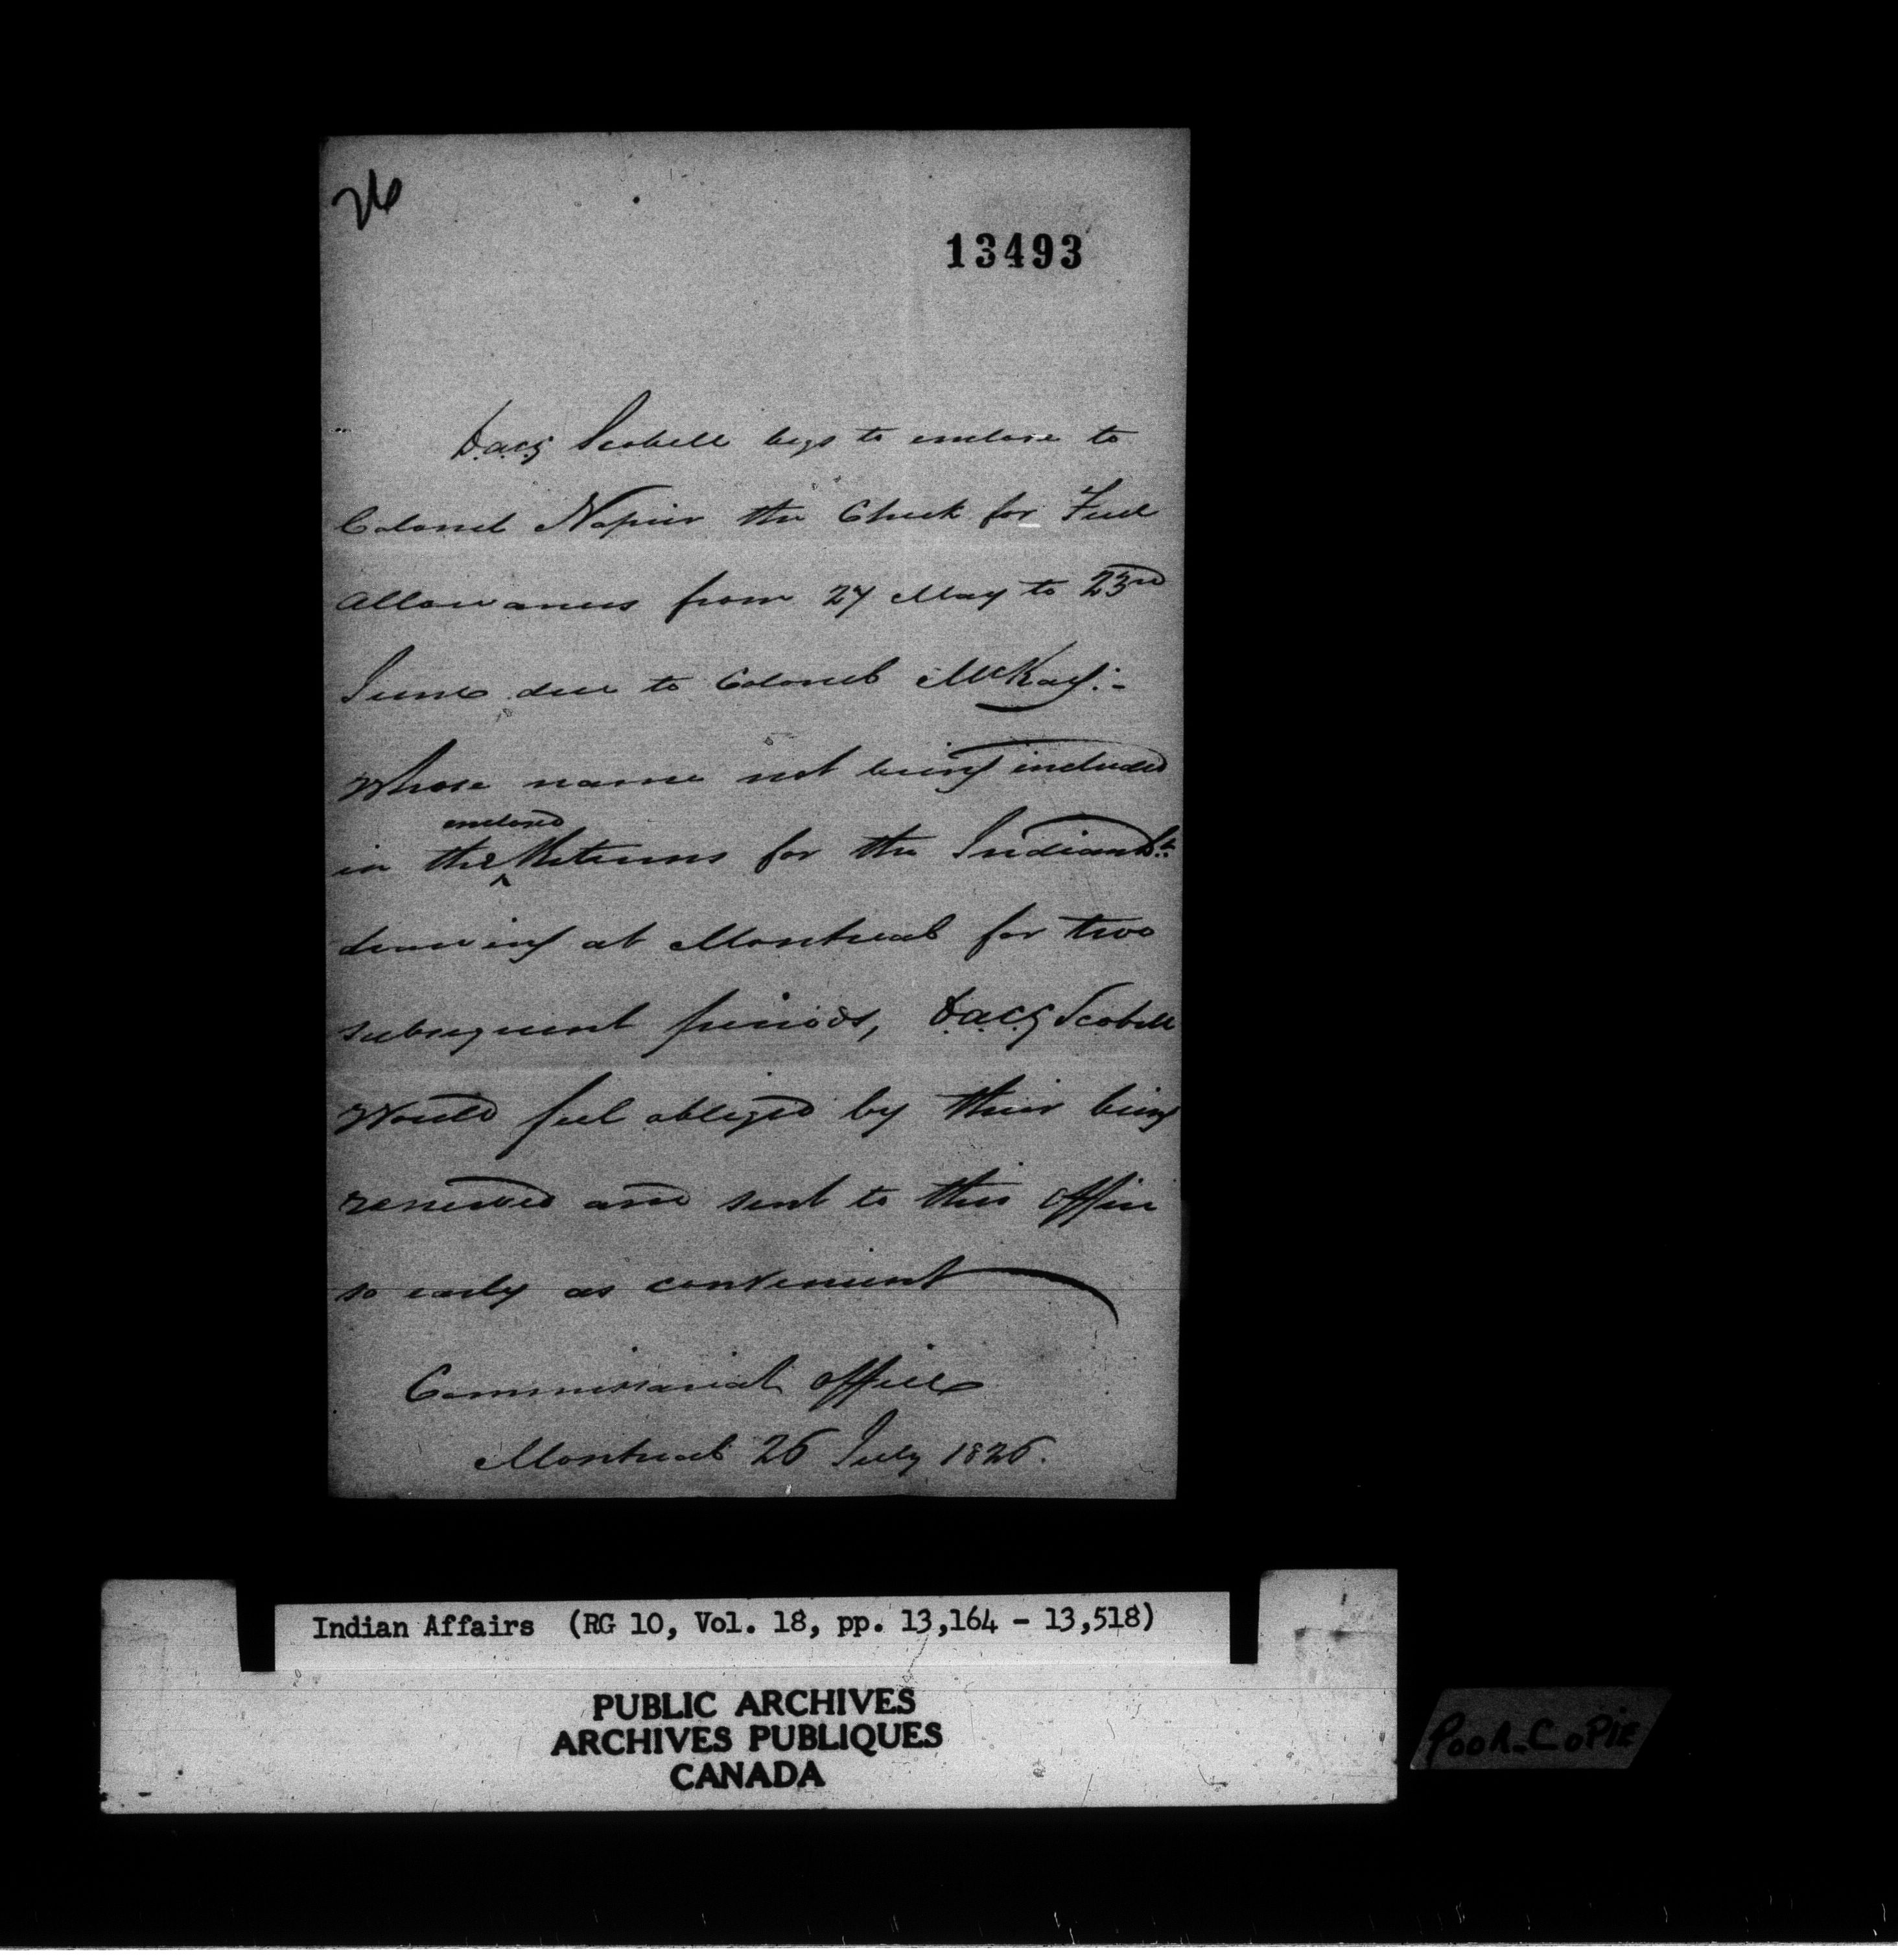 26
13493
D.A.C.G Scobell begs to enclose to
Colonel Napier the Check for Fuel
Allowances from 27 May to 23rd
June due to Colonel McKay:-
Whose name not being included
in the ^enclosed Returns for the Indian Dt.
drawing at Montreal for two
subsequent periods, D.A.C.G Scobell
Would feel obliged by their being
renewed and sent to this Office
so early as convenient
Commissariat Office
Montreal 26 July 1826.
Indian Affairs (RG 10, Vol. 18, pp. 13,164 - 13,518)
PUBLIC ARCHIVES
ARCHIVES PUBLIQUES
CANADA
POOR COPIE